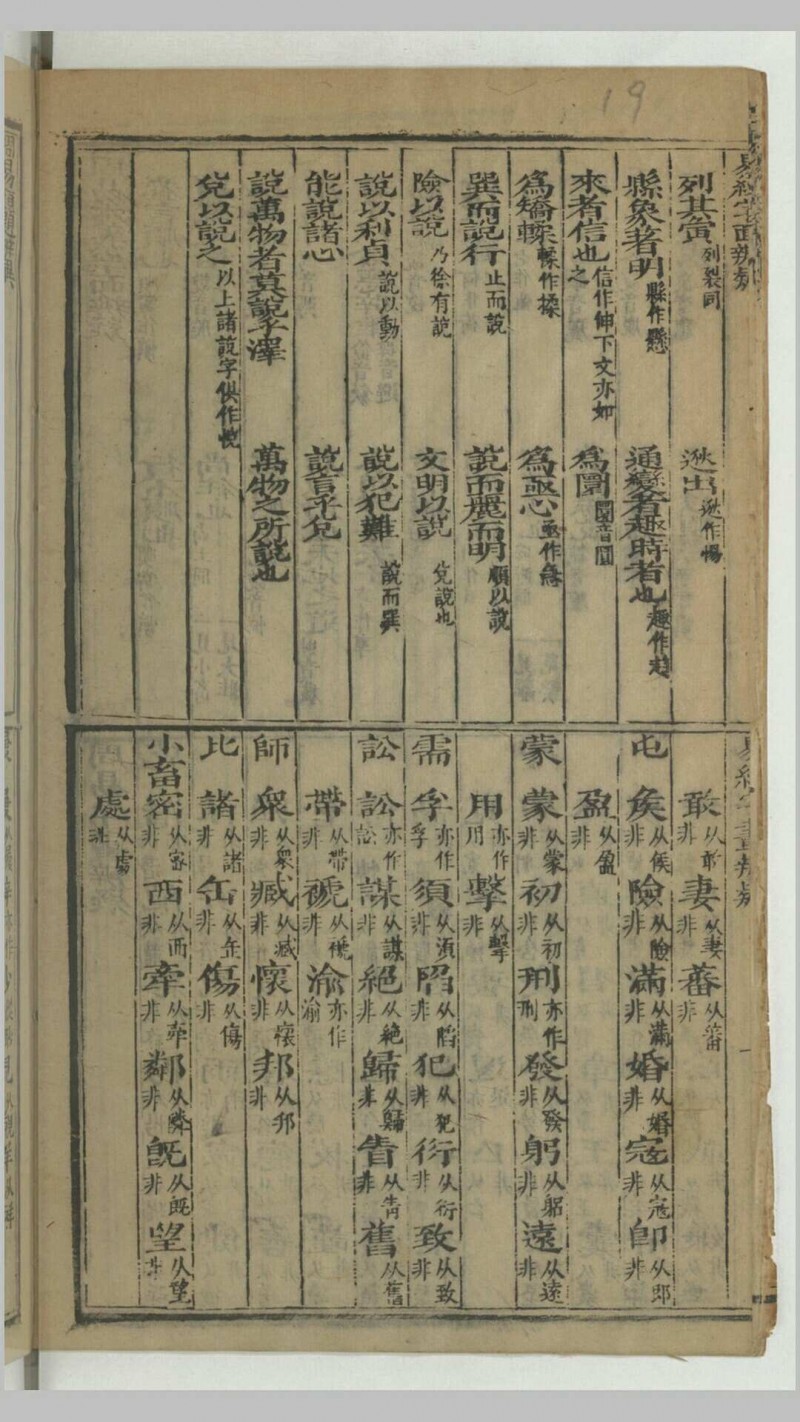 19
易經字畫辨疑
列其夤 列裂同 逖出 逖作惕
縣象者明 縣作懸 通變者趣時者也 趣作趨
來者信也 信作伸下文亦如之 為圜 圜音圓
為矯輮 輮作揉 為亟心 亟作急
巽而說行 止而說 說而麗而明 順以說
險以說 乃徐有說 文明以說 兌說也
說以利貞 說以動 說以犯難 說而巽
能說諸心 說言乎兌
說萬物者莫說乎澤 萬物之所說也
兌以說之 以上諸說字俱作悅
敢 妻 从妻非 蕃 从番非
屯 侯 从候非 險 从險非 滿 从滿非 婚 从婚非 寇 从寇非 即 从郎非
盈 从盈非
蒙 蒙 从蒙非 初 从初非 刑 亦作刑 發 从發非 躬 从躳非 遠 从遠非
用 亦作用 擊 从擊非
需 孚 亦作孚 須 从須非 陷 从陷非 犯 从犯非 衍 从衍非 致 从致非
訟 訟 亦作訟 謀 从謀非 絕 从絶非 歸 从歸非 眚 从青非 舊 从舊
帶 从帶非 褫 从褫非 渝 亦作渝
師 眾 从衆非 臧 从臧非 懷 从懷非 邦 从邦非
比 諸 从諸非 缶 从缶非 傷 从傷非
小畜 密 从密非 西 从西非 牽 从牽非 鄰 从隣非 既 从旣非 望 从望非
處 从處非